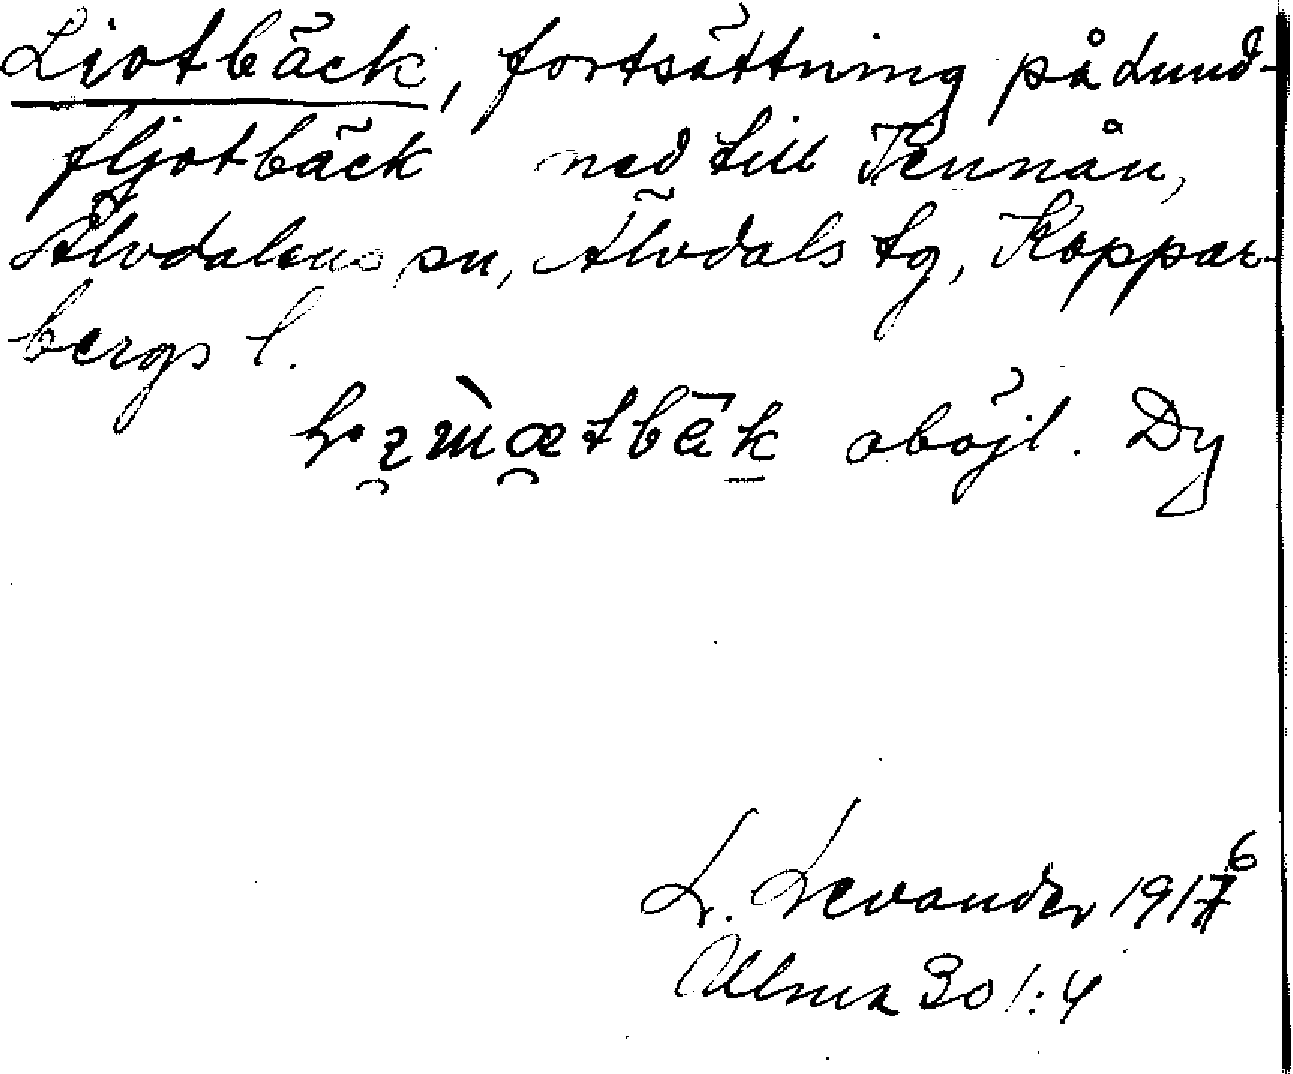 Ljotbäck, fortsättning på Lund-
fljotbäck ned till Tennån,
Älvdalens sn, Älvdals tg, Koppar-
bergs l.
oböjl. Dy
L. Levander 1916
Ulma 301:4